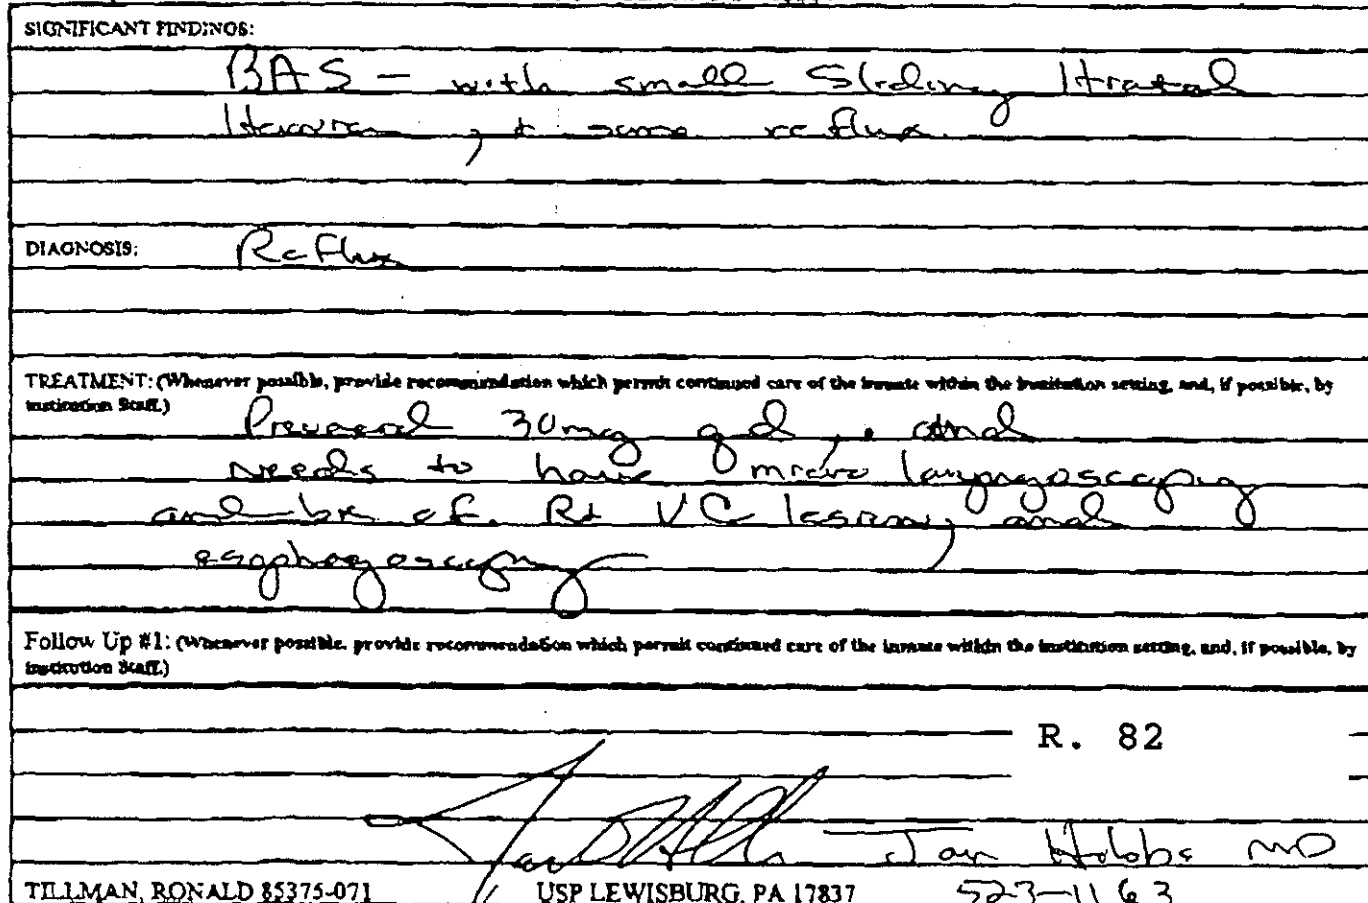 SIGNIFICANT FINDINGS:
BAS - with small Sliding Hiatal
Hernia, + some reflux.
DIAGNOSIS: Reflux
TREATMENT: (Whenever possible, provide recommendation which permit continued care of the inmate within the institution setting, and, if possible, by
institution Staff.)
Prevacid 30mg qd, and
needs to have micro laryngoscopy
and bx of Rt VC lesion, and
esophogoscopy
Follow Up #1: (Whenever possible, provide recommendation which permit continued care of the inmate within the institution setting, and, if possible, by
institution Staff.)
R. 82
MD
TILLMAN, RONALD 85375-071 USP LEWISBURG, PA 17837 523-1163